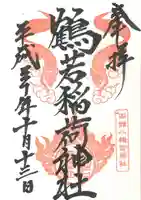 奉拝
鶴若稲荷神社
平成三十年十月十三日